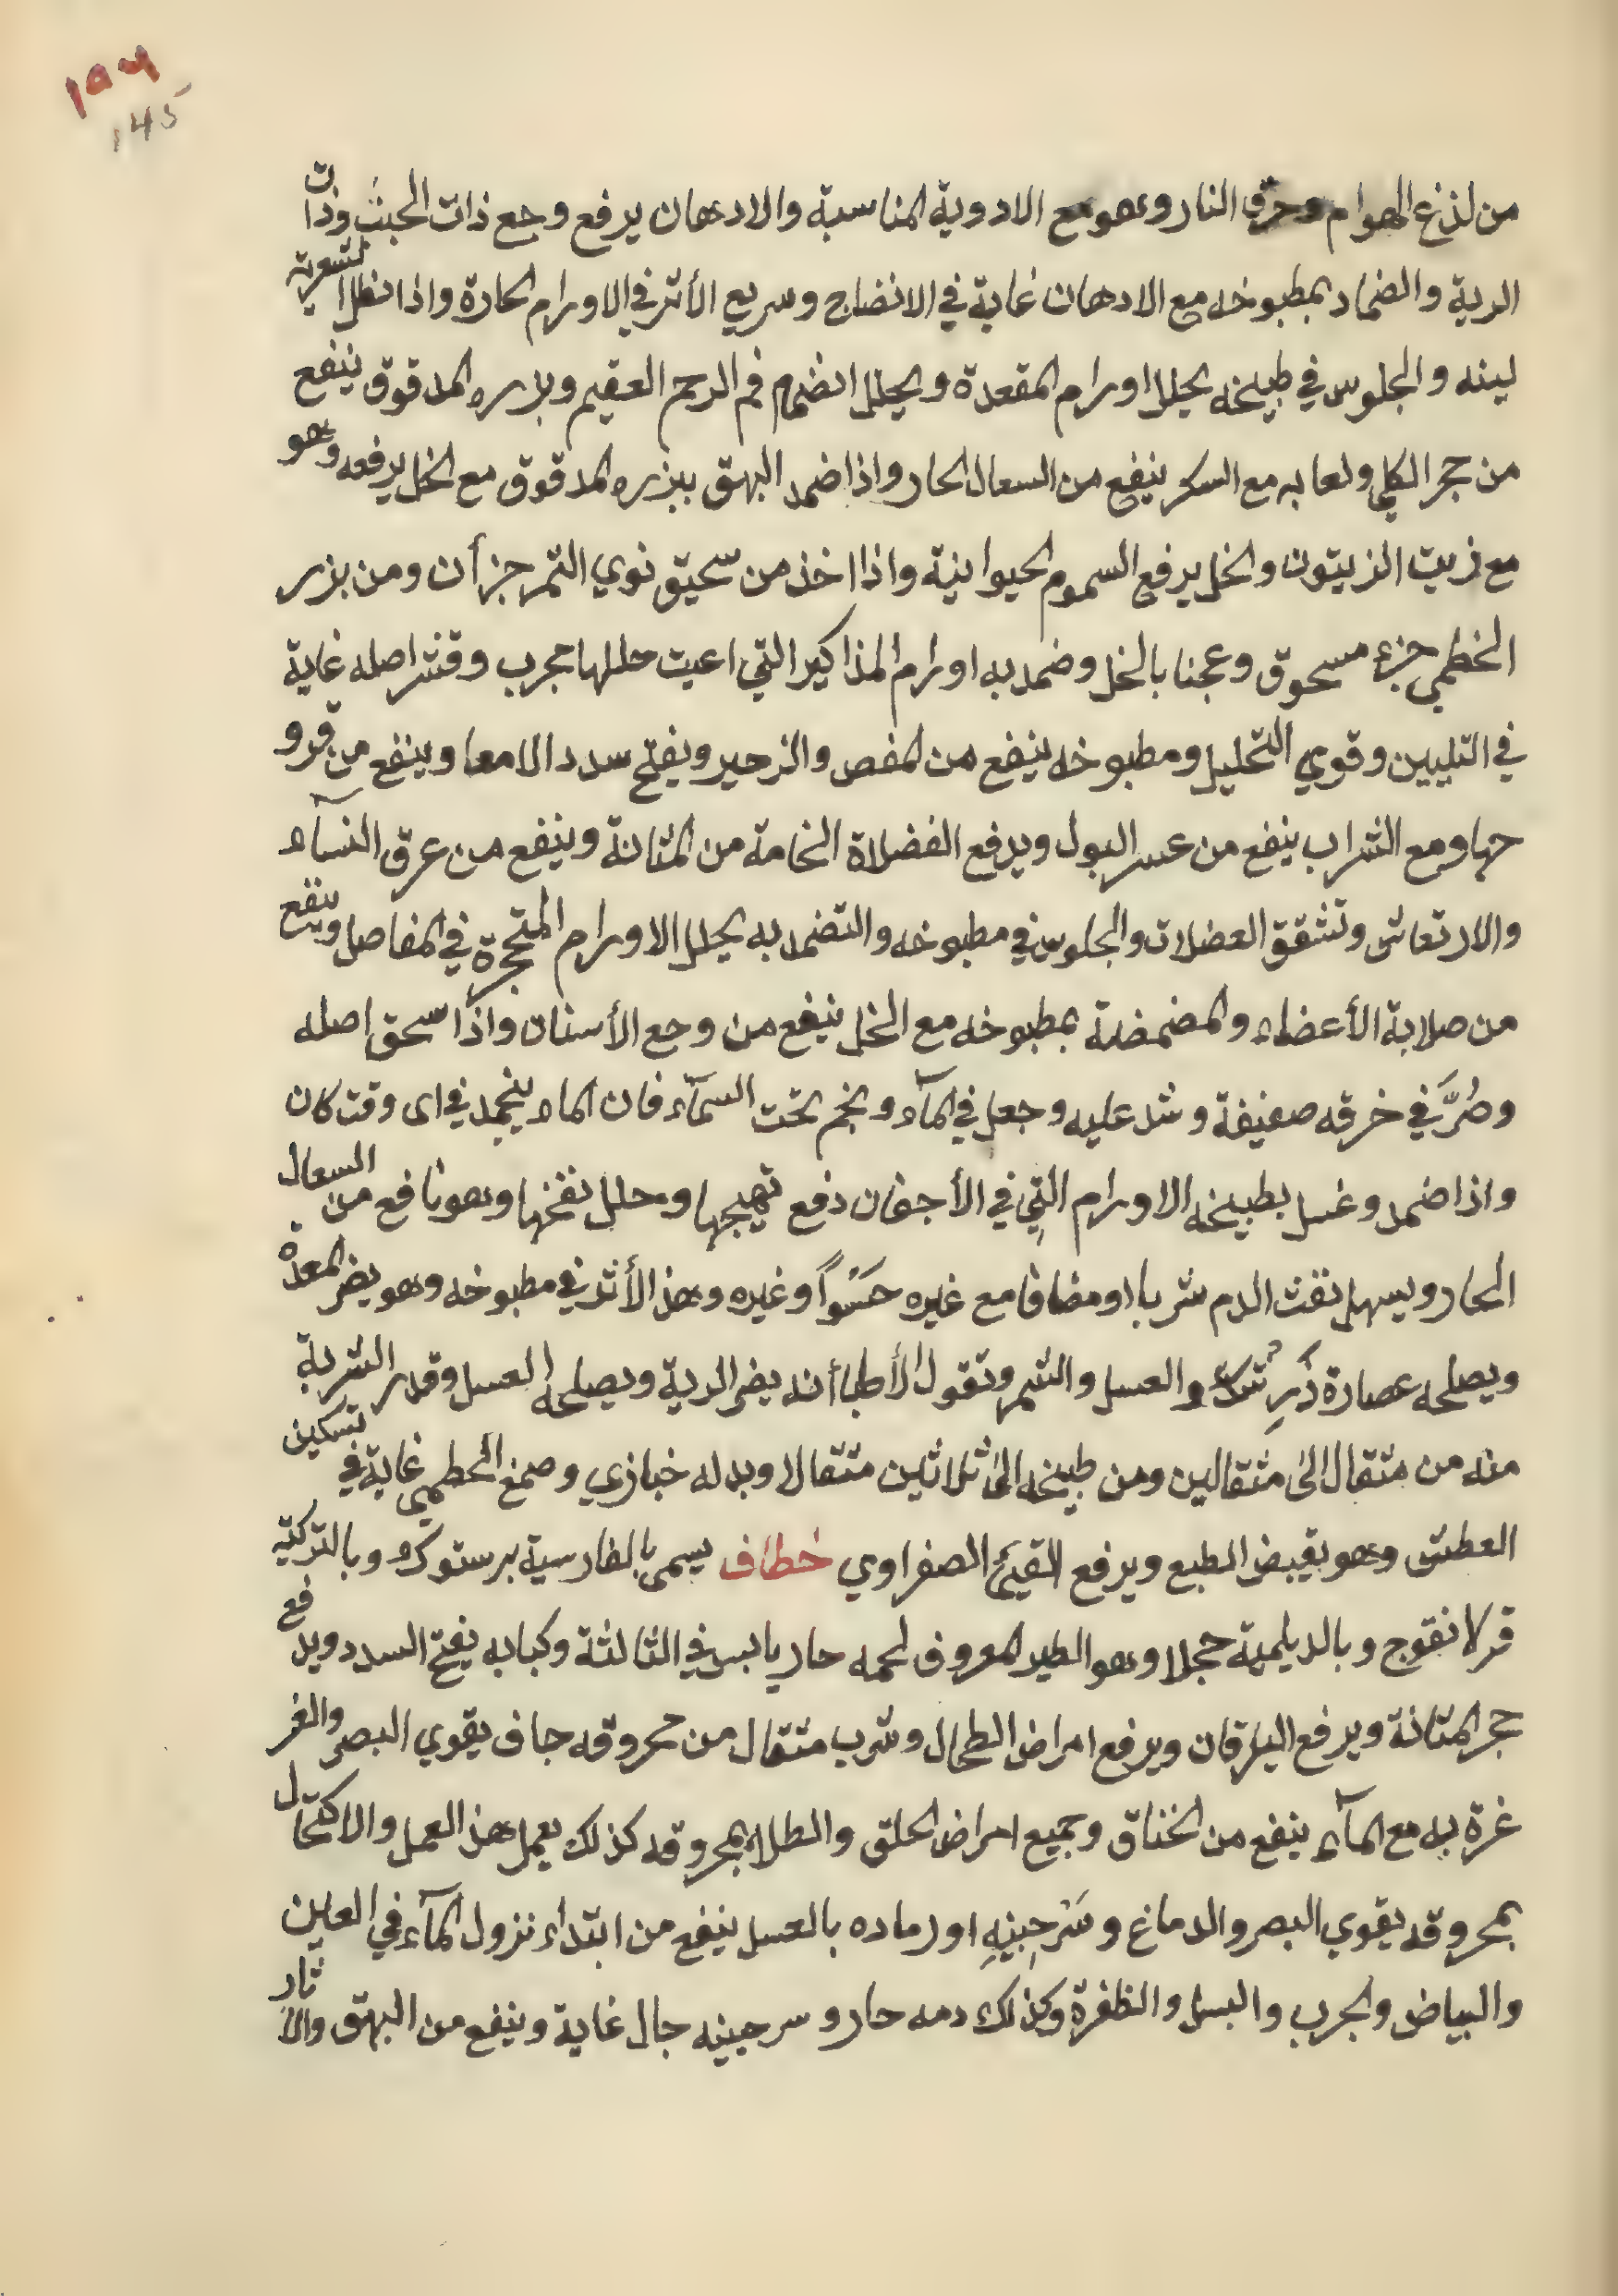 ١٥٦
145
من لذغ الهوام وحرق النار وهو مع الادوية المناسبة والادهان يرفع وجع ذات الجنب وذات
الرية والضماد بمطبوخه مع الادهان غاية في الانضاج وسريع الأثر في الاورام الحارة واذا نطل الشعر به
لينه والجلوس في طبيخه يحلل اورام المقعدة ويحلل انضمام فم الرحم العقيم وبزره المدقوق ينفع
من حجر الكلي ولعابه مع السكر ينفع من السعال الحار واذا ضمد البهق ببزره المدقوق مع الخل يرفعه وهو
مع زيت الزيتون والخل يرفع السموم الحيوانية واذا اخذ من سحيق نوي التمر جزأن ومن بزر
الخطمي جزء مسحوق وعجنا بالخل وضمد به اورام المذاكير التي اعيت حللها مجرب وقشر اصله غاية
في التليين وقوي التحليل ومطبوخه ينفع من المغص والزحير ويفتح سدد الامعا وينفع من قرو
حها ومع الشراب ينفع من عسر البول ويرفع الفضلاة الخامة من المثانة وينفع من عرق النسآء
والارتعاش وتشقق العضلات والجلوس في مطبوخه والتضمد به يحلل الاورام المتحجرة في المفاصل وينفع
من صلابة الأعضاء والمضمضة بمطبوخه مع الخل ينفع من وجع الأسنان واذا سحق اصله
وصُرَّ في خرقه صفيفة وشد عليه وجعل في المآء ونجم تحت السمآء فان الماء ينجمد في اى وقت كان
واذا ضمد وغسل بطبيخه الاورام التي في الأجفان دفع تهيجها وحلل نفخها وهو نافع من السعال
الحار ويسهل نفث الدم شربا او مضافا مع غيره حَسْواً وغيره وهذ الأثر في مطبوخه وهو يضر المعدة
ويصلحه عصارة زَرِشك والعسل والشمر وتقول الأطبا أنه يضر الرية ويصلحه العسل وقدر الشربة
منه من مثقال الى مثقالين ومن طبيخه الى ثلاثين مثقالا وبدله خبازي وصمغ الخطمي غاية في تسكين
العطش وهو يقبض الطبع ويرفع القيئ الصفراوي خطاف يسمى بالفارسية برستوك وبالتركيه
قرلانقوج وبالديلمية حجلا وهو الطير المعروف لحمه حار يابس في الثالثة وكبابه يفتح السدد ويرفع
حجر المثانة ويرفع اليرقان ويرفع امراض الطحال وشرب مثقال من محروقه جاف يقوي البصر والغر
غرة به مع المآء ينفع من الخناق وجميع امراض الحلق والطلاء بمحروقه كذلك يعمل هذ العمل والاكتحال
بمحروقه يقوي البصر والدماغ وسَرجِينِهِ او رماده بالعسل ينفع من ابتداء نزول المآء في العين
والبياض والجرب والسبل والظفرة وكذلك دمه حار وسرجينه جال غاية وينفع من البهق والآثار